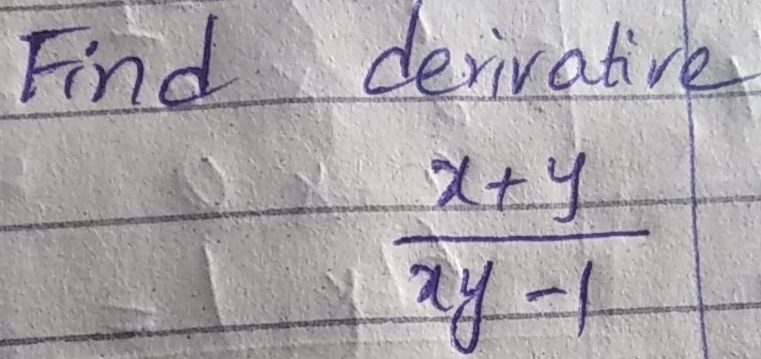 Find derivative
x+y
xy-1